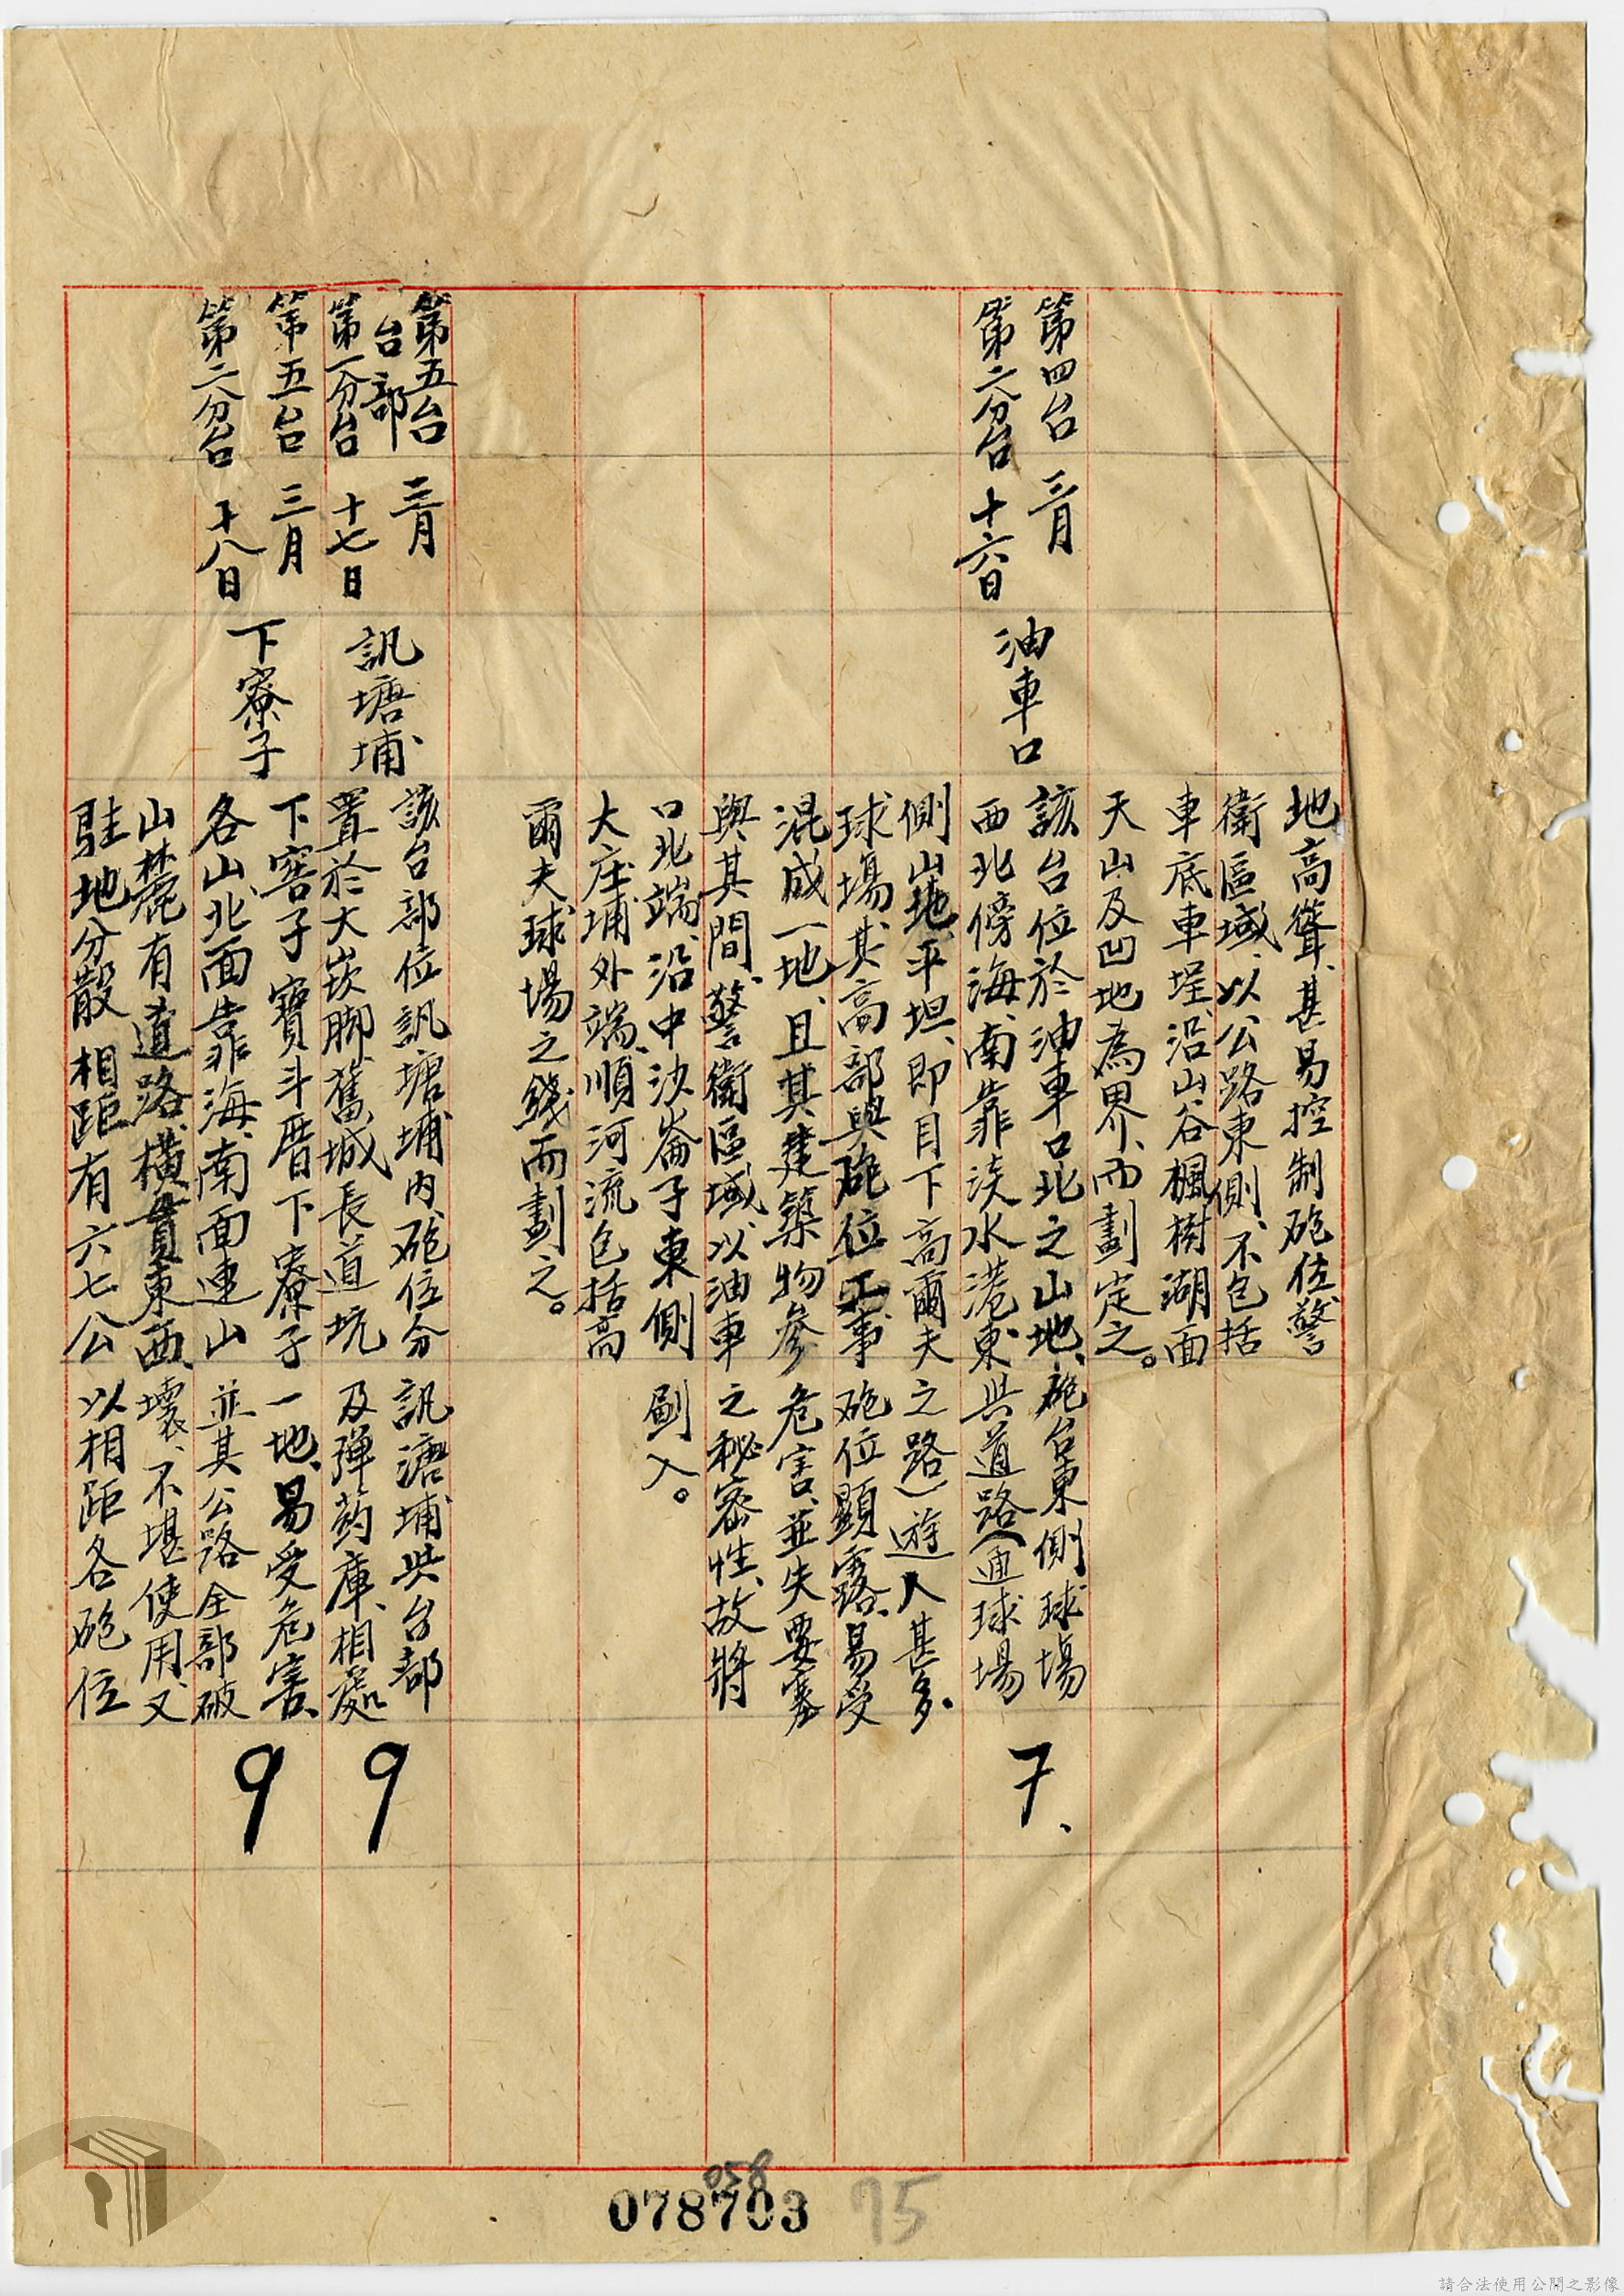 地高聳、甚易控制砲位、警
衛區域、以公路東側、不包括
車底車埕、沿山谷楓樹湖面
天山及凹地為界、而劃定之。
第四台
第二分台
三月
十六日
油車口
該台位於油車口北之山地、
西北傍海、南靠淡水港、東
側山地平坦、即目下高爾夫
球場、其高部與砲位工事
混成一地、且其建築物參
與其間、警衛區域、以油車
口北端、沿中沙崙子東側
大庄埔外端、順河流包括高
爾夫球場之綫而劃之。
砲台東側球場
與道路（通球場
之路）遊人甚多、
砲位顯露、易受
危害、並失要塞
之秘密性、故將
劃入。
7、
第五台
台部
第一分台
三月
十七日
訊塘埔
該台部位訊塘埔內、砲位分
置於大崁脚、舊城、長道坑
訊塘埔與台部
及彈药庫、相處
一地、易受危害、
9
第五台
第二分台
三月
十八日
下寮子
下窖子寶斗厝下寮子
各山、北面靠海、南面連山
山麓有道路、橫貫東西、
駐地分散相距有六七公
並其公路全部破
壞、不堪使用、又
以相距各砲位
9
078703
058
75
請合法使用公開之影像